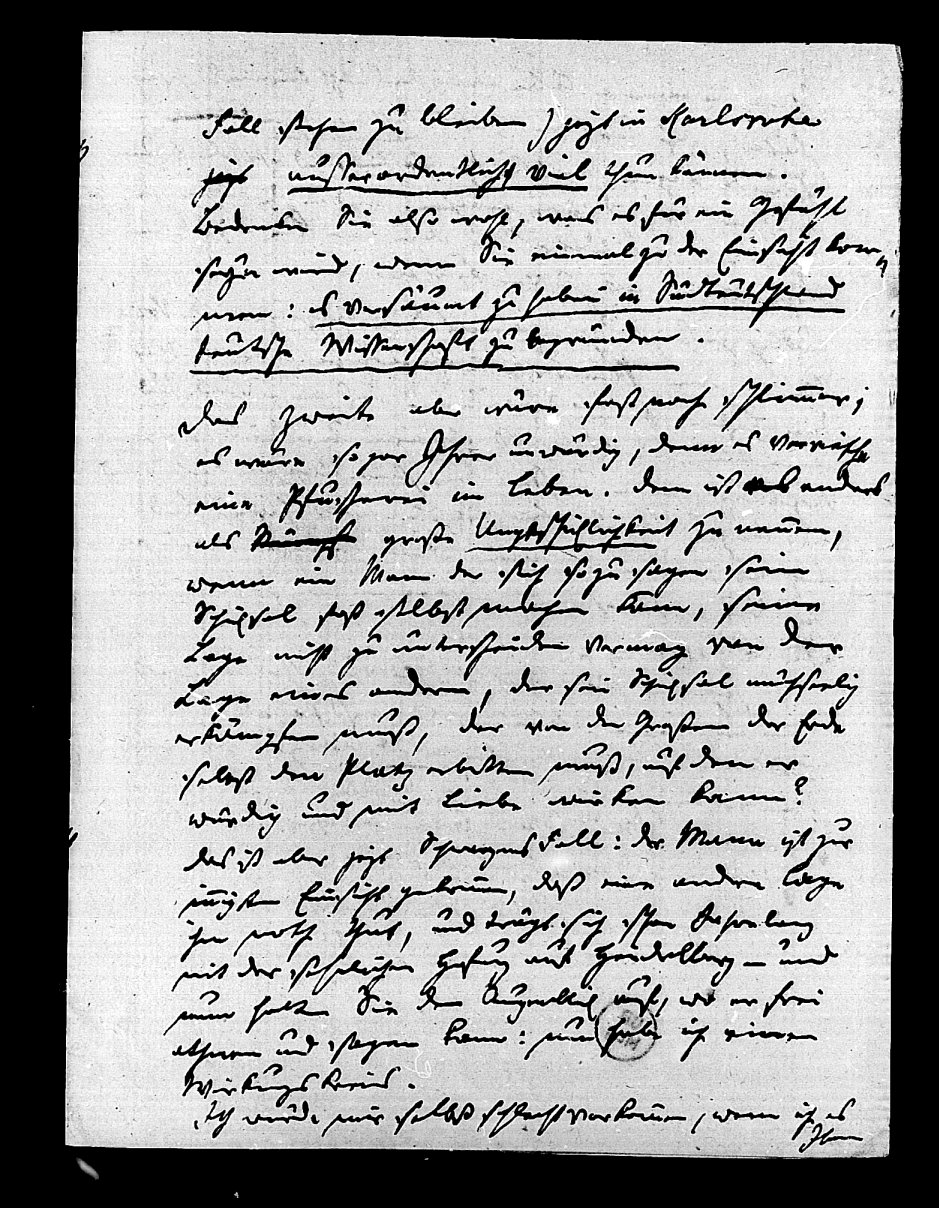 Fall stehen zu bleiben) jezt in Karlsruhe
jezt ausserordentlich viel thun können.
Bedenken Sie also wohl, was es für ein Gefühl
seyn wird, wenn Sie einmal zu der Einsicht kom-
men: es versäumt zu haben in Südteutschland
teutsche Wissenschaft zu begründen.
Das zweite aber wäre fast noch schlimmer;
es wäre sogar Ihrer unwürdig, denn es verriethe
eine Pfuscherei im Leben. Denn ist es anders
als große Ungeschicklichkeit zu nennen,
wenn ein Mann der sich so zu sagen sein
Schiksal fast selbst machen kann, seine
Lage nicht zu unterscheiden vermag von der
Lage eines andern, der sein Schiksal mühseelig
erkämpfen muß, der von den Geistern der Erde
selbst den Platz erbitten muß, auf dem er
würdig und mit Liebe wirken kann?
Das ist aber jezt Fall: der Mann ist zur
Einsicht gekommen, daß eine andere Lage
ihm noth thut, und trägt sich schon
mit der aus Heidelberg – und
nun halten Sie den Augenblick auf, wo er frei
athmen und sagen kann: nun habe ich einen
Wirkungskreis.
Ich würde mir selbst schlecht vorkommen, wenn ich es
Ihnen